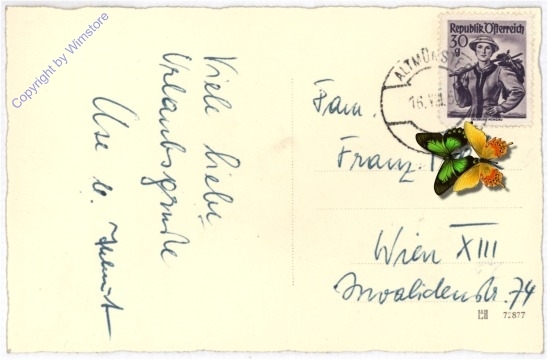 Copyright by Wimstore
Viele liebe
Urlaubsgrüße
Ilse u. Helmut
Republik Österreich
30
g
ALTMÜNS
16.VII.5
Fam.
Franz
Wien XIII
Invalidenstr. 74
72877